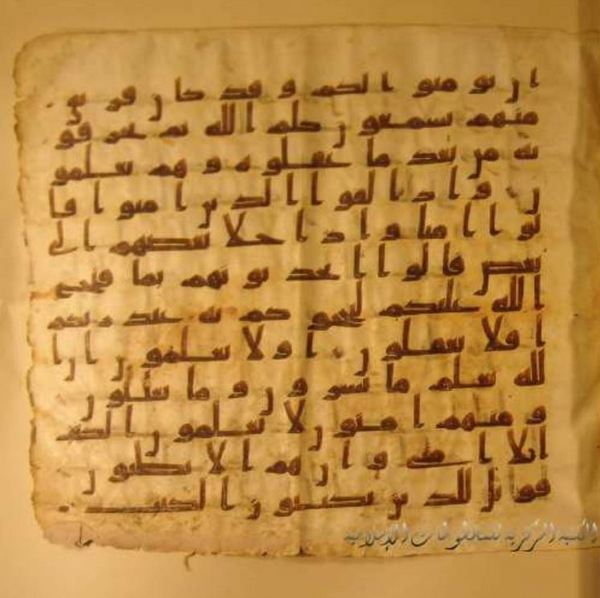 ان يومنوا لكم وقد كان فريق
منهم يسمعون كلم الله ثم يحرفو
نه من بعد ما عقلوه وهم يعلمو
ن واذا لقوا الذين امنوا قا
لوا امنا واذا خلا بعضهم الى
بعض قالوا اتحدثونهم بما فتح
الله عليكم ليحجوكم به عند ربكم
افلا تعقلون اولا يعلمون ان ا
لله يعلم ما يسرون وما يعلنون
ومنهم اميون لا يعلمون الكتب
الا امني وان هم الا يظنون
فويل للذين يكتبون الكتب
للمعلومات الإسلامية